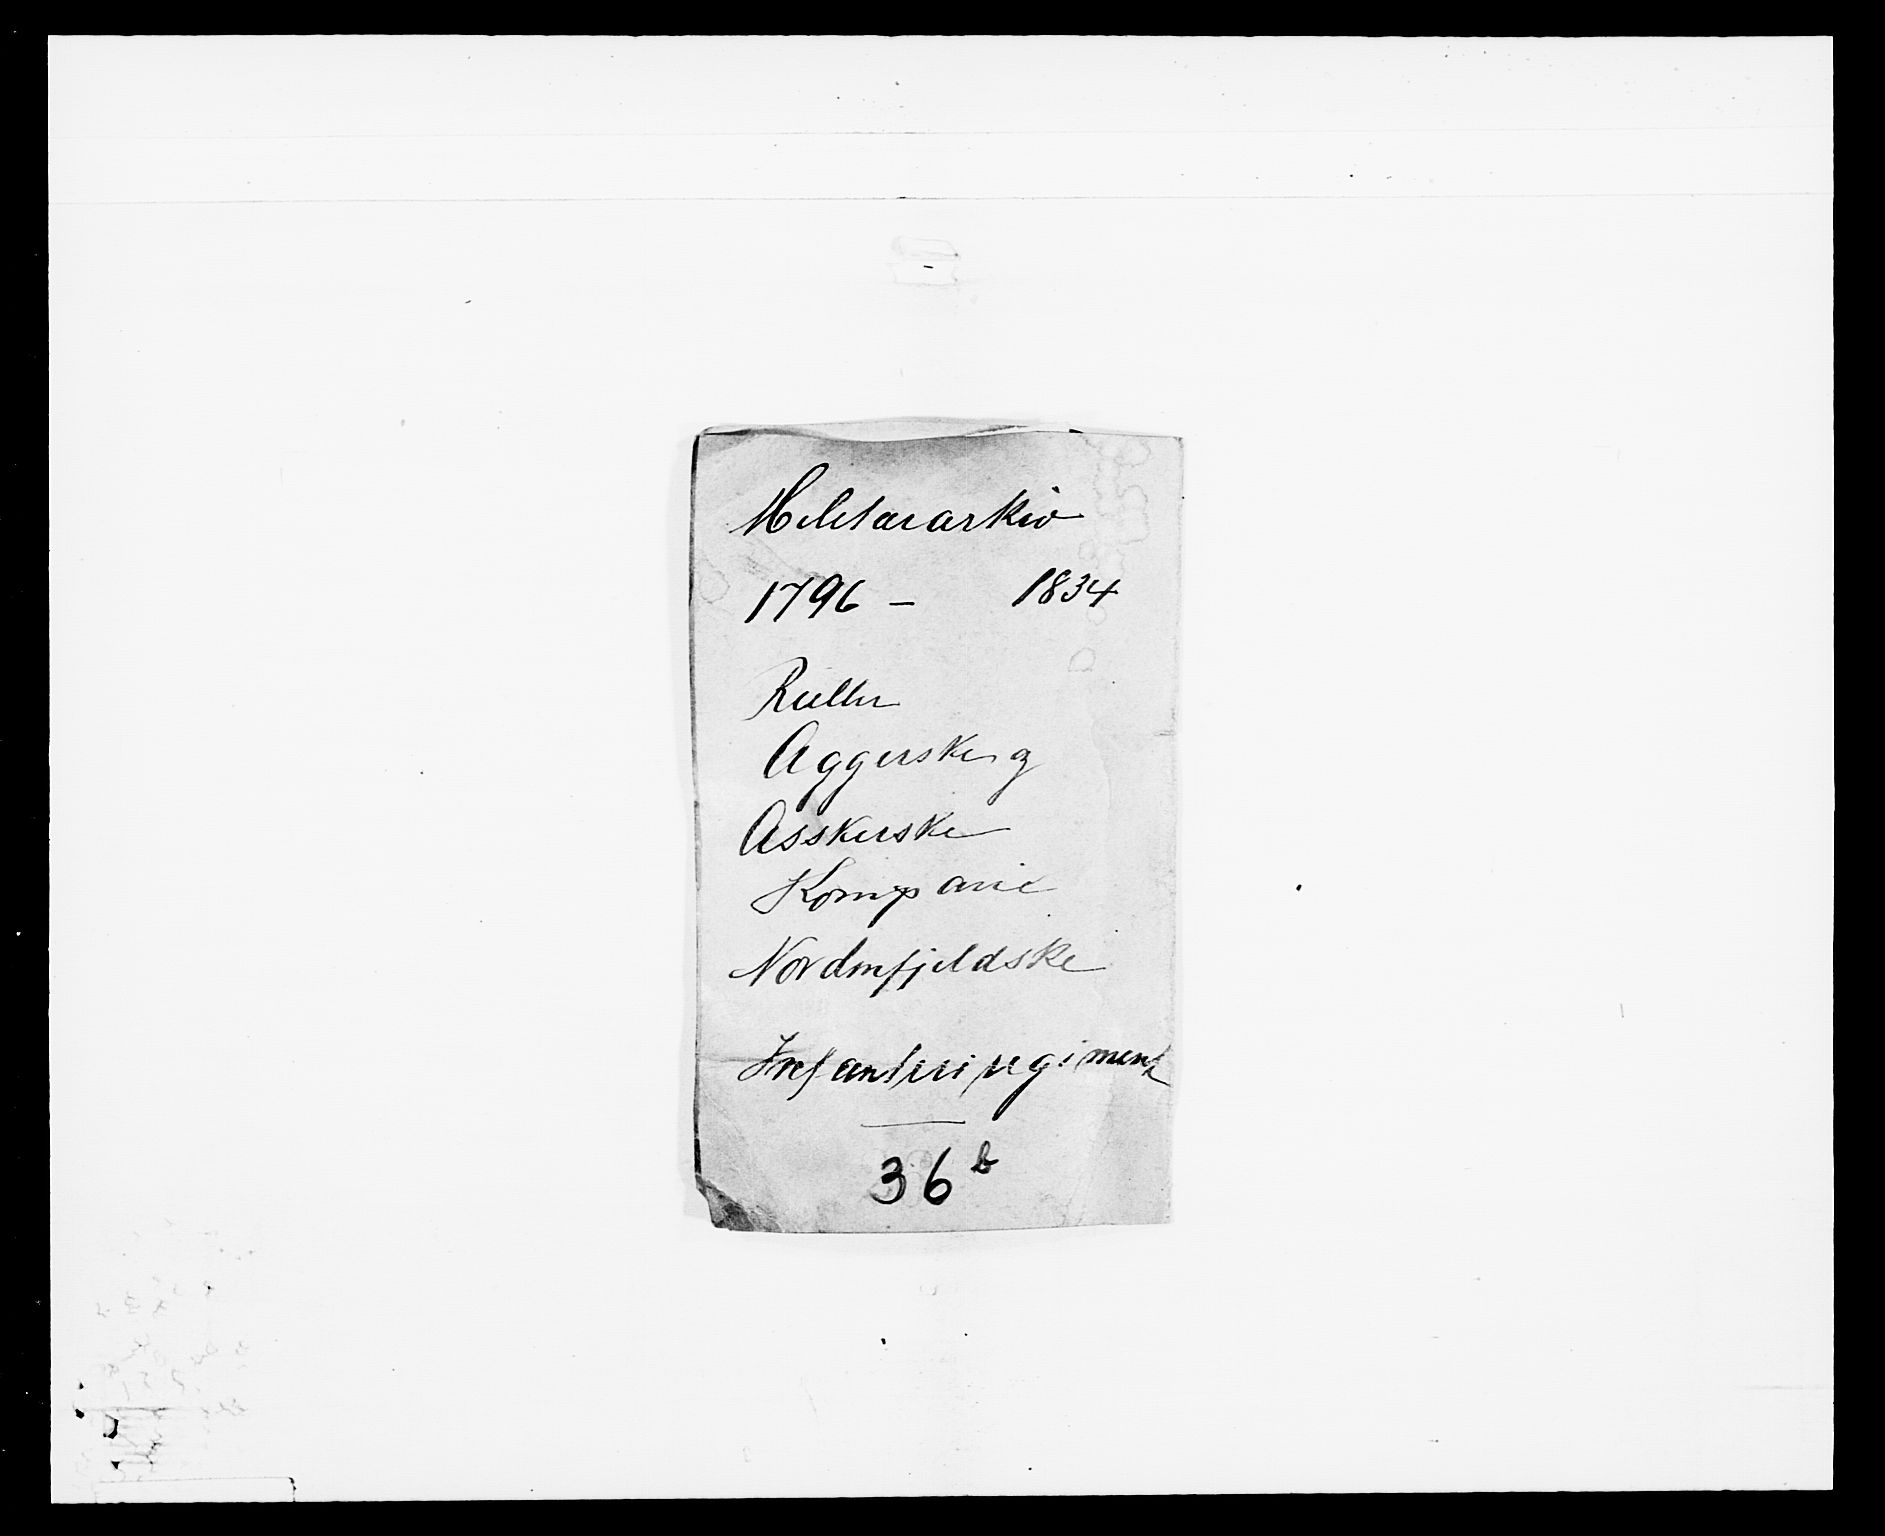 Militærarkiv
1796 – 1834
Ruller
Aggerske og
Asskerske
Kompanie
Nordenfjeldske
Infanteriregiment
36 b